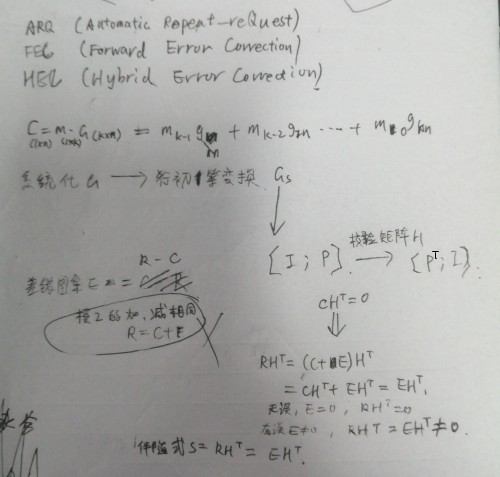 ARQ (Automatic Repeat-reQuest)
FEC (Forward Error Correction)
HEC (Hybrid Error Correction)
C = m · G (k×n) = m k-1 g + m k-2 g 2n ···· + m 0 g kn
(1×n) (1×k)
系统化 G → 行初等变换 Gs
[I ; P] → 校验矩阵H [Pᵀ; I].
R - C
差错图案 E =
模2的加,减相同
R = C+E
CHᵀ=0
RHᵀ = (C+E)Hᵀ
= CHᵀ + EHᵀ = EHᵀ,
无误, E=0, RHᵀ=0
有误 E≠0, RHᵀ = EHᵀ≠0.
伴随式 S = RHᵀ = EHᵀ.